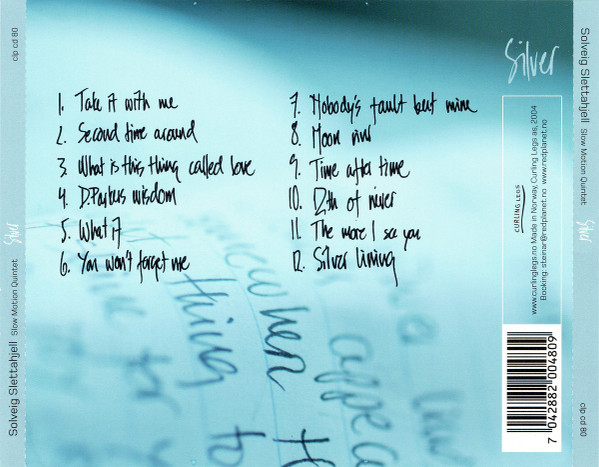 Solveig Slettahjell Slow Motion Quintet
Silver
clp cd 80
1. Take it with me
2. Second time around
3. What is this thing called love
4. D.Parkers wisdom
5. What if
6. You won't forget me
7. Nobody's fault but mine
8. Moon river
9. Time after time
10. 12th of never
11. The more I see you
12. Silver lining
thing
when
to
Silver
CURLING LEGS
www.curlinglegs.no Made in Norway, Curling Legs as, 2004
Booking: steinar@redplanet.no www.redplanet.no
7 042882 004809
Solveig Slettahjell Slow Motion Quintet
Silver
clp cd 80